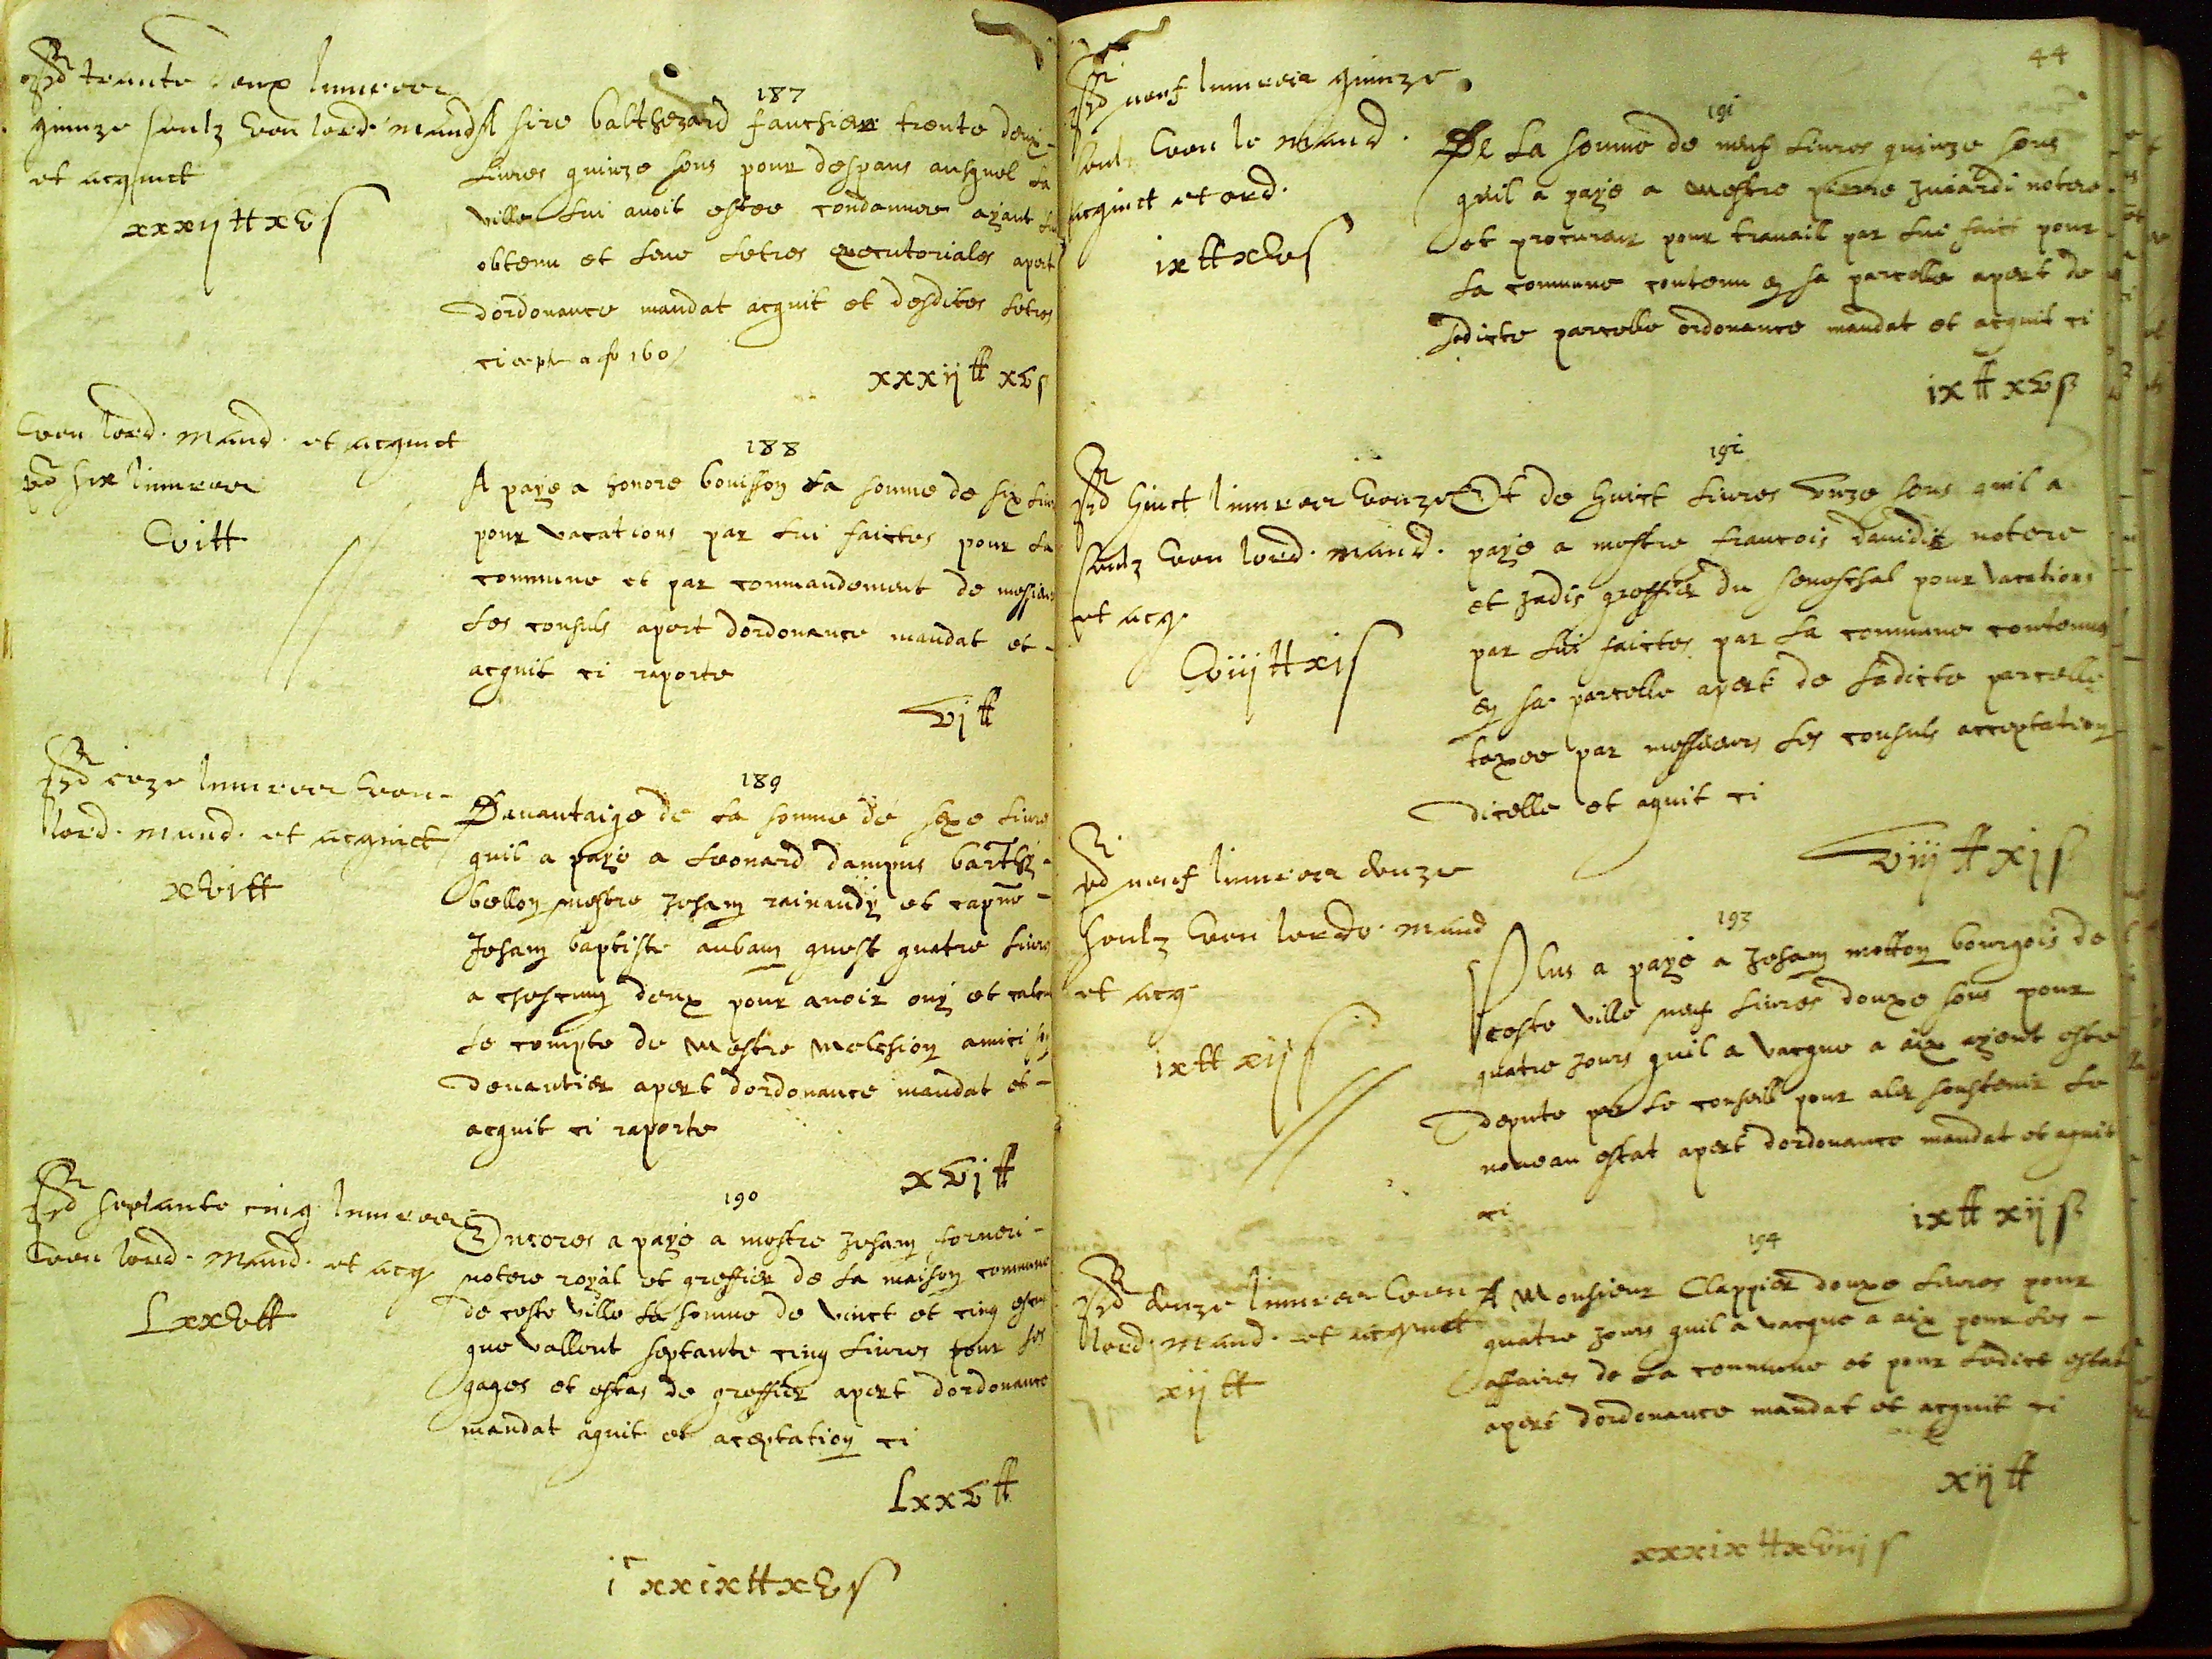 trente deux livres
quinze soulz veu lord. mand.
et acquict
xxxij ₶ xv s
187
A sire balthezard fauchier trente deux
livres quinze sous pour despans ausquel la
ville lui avoit estee condannee ayant
obtenu et leve letres executoriales apert
dordonance mandat acquit et desdites letres
ci 160
xxxij ₶ xv s
veu lord. mand. et acquict
six livres
vi ₶
188
A paye a honore bouisson la somme de six
pour vacations par lui faictes pour la
commune et par commandement de messieurs
les consuls apert dordonance mandat et
acquit ci raporte
vj ₶
livres veu
lord. mand. et acquict
xvi ₶
189
Davantaige de la somme de seze livres
quil a paye a leonard dampus
bellon mestre Jehan rainaudy et capne
Jehan baptiste aubany quest quatre livres
a chescung deux pour avoir ouy et
le compte de mestre melchion amici
devantier apert dordonance mandat et
acquit ci raporte
xvj ₶
septante cinq livres
veu lord. mand. et acq.
Lxxv ₶
190
Encores a paye a mestre Jehan forneri
notere royal et greffier de la maison commune
de ceste ville la somme de vinct et cinq escus
que vallent septante cinq livres pour ses
gages et estas de greffier apert dordonance
mandat aquit et aceptation ci
Lxxv ₶
i c xxix ₶ xv s
44
neuf livres quinze
veu le mand.
acquict et ord.
ix ₶ xv s
191
De la somme de neuf livres quinze sous
quil a paye a mestre pierre notere
et procureur pour travail par lui faict pour
la commune contenu en sa parcelle apert de
ladicte parcelle ordonance mandat et acquit ci
ix ₶ xv s
huict livres vonze
soulz veu lord. mand.
et acq.
viij ₶ xi s
192
Et de huict livres unze sous quil a
paye a mestre francois davidis notere
et jadis greffier du seneschal pour vacations
par lui faictes par la commune contenues
en sa parcelle apert de ladicte parcelle
taxee par messieurs les consuls acceptation
dicelle et aquit ci
viij ₶ xj s
neuf livres douze
soulz veu lordo. mand
et acq.
ix ₶ xij s
193
Plus a paye a Jehan motton bourgois de
ceste ville neuf livres douxe sous pour
quatre jours quil a vacque a aix ayent este
depute par le conseil pour aler soustenir le
nouveau estat apert dordonance mandat et aquit
ci
ix ₶ xij s
douze livres veu
lord. mand. et acquict
xij ₶
194
A Monsieur Clappier douxe livres pour
quatre jours quil a vacque a aix pour les
affaires de la commune et pour ledict estat
apert dordonance mandat et acquit ci
xij ₶
xxxix ₶ xviij s